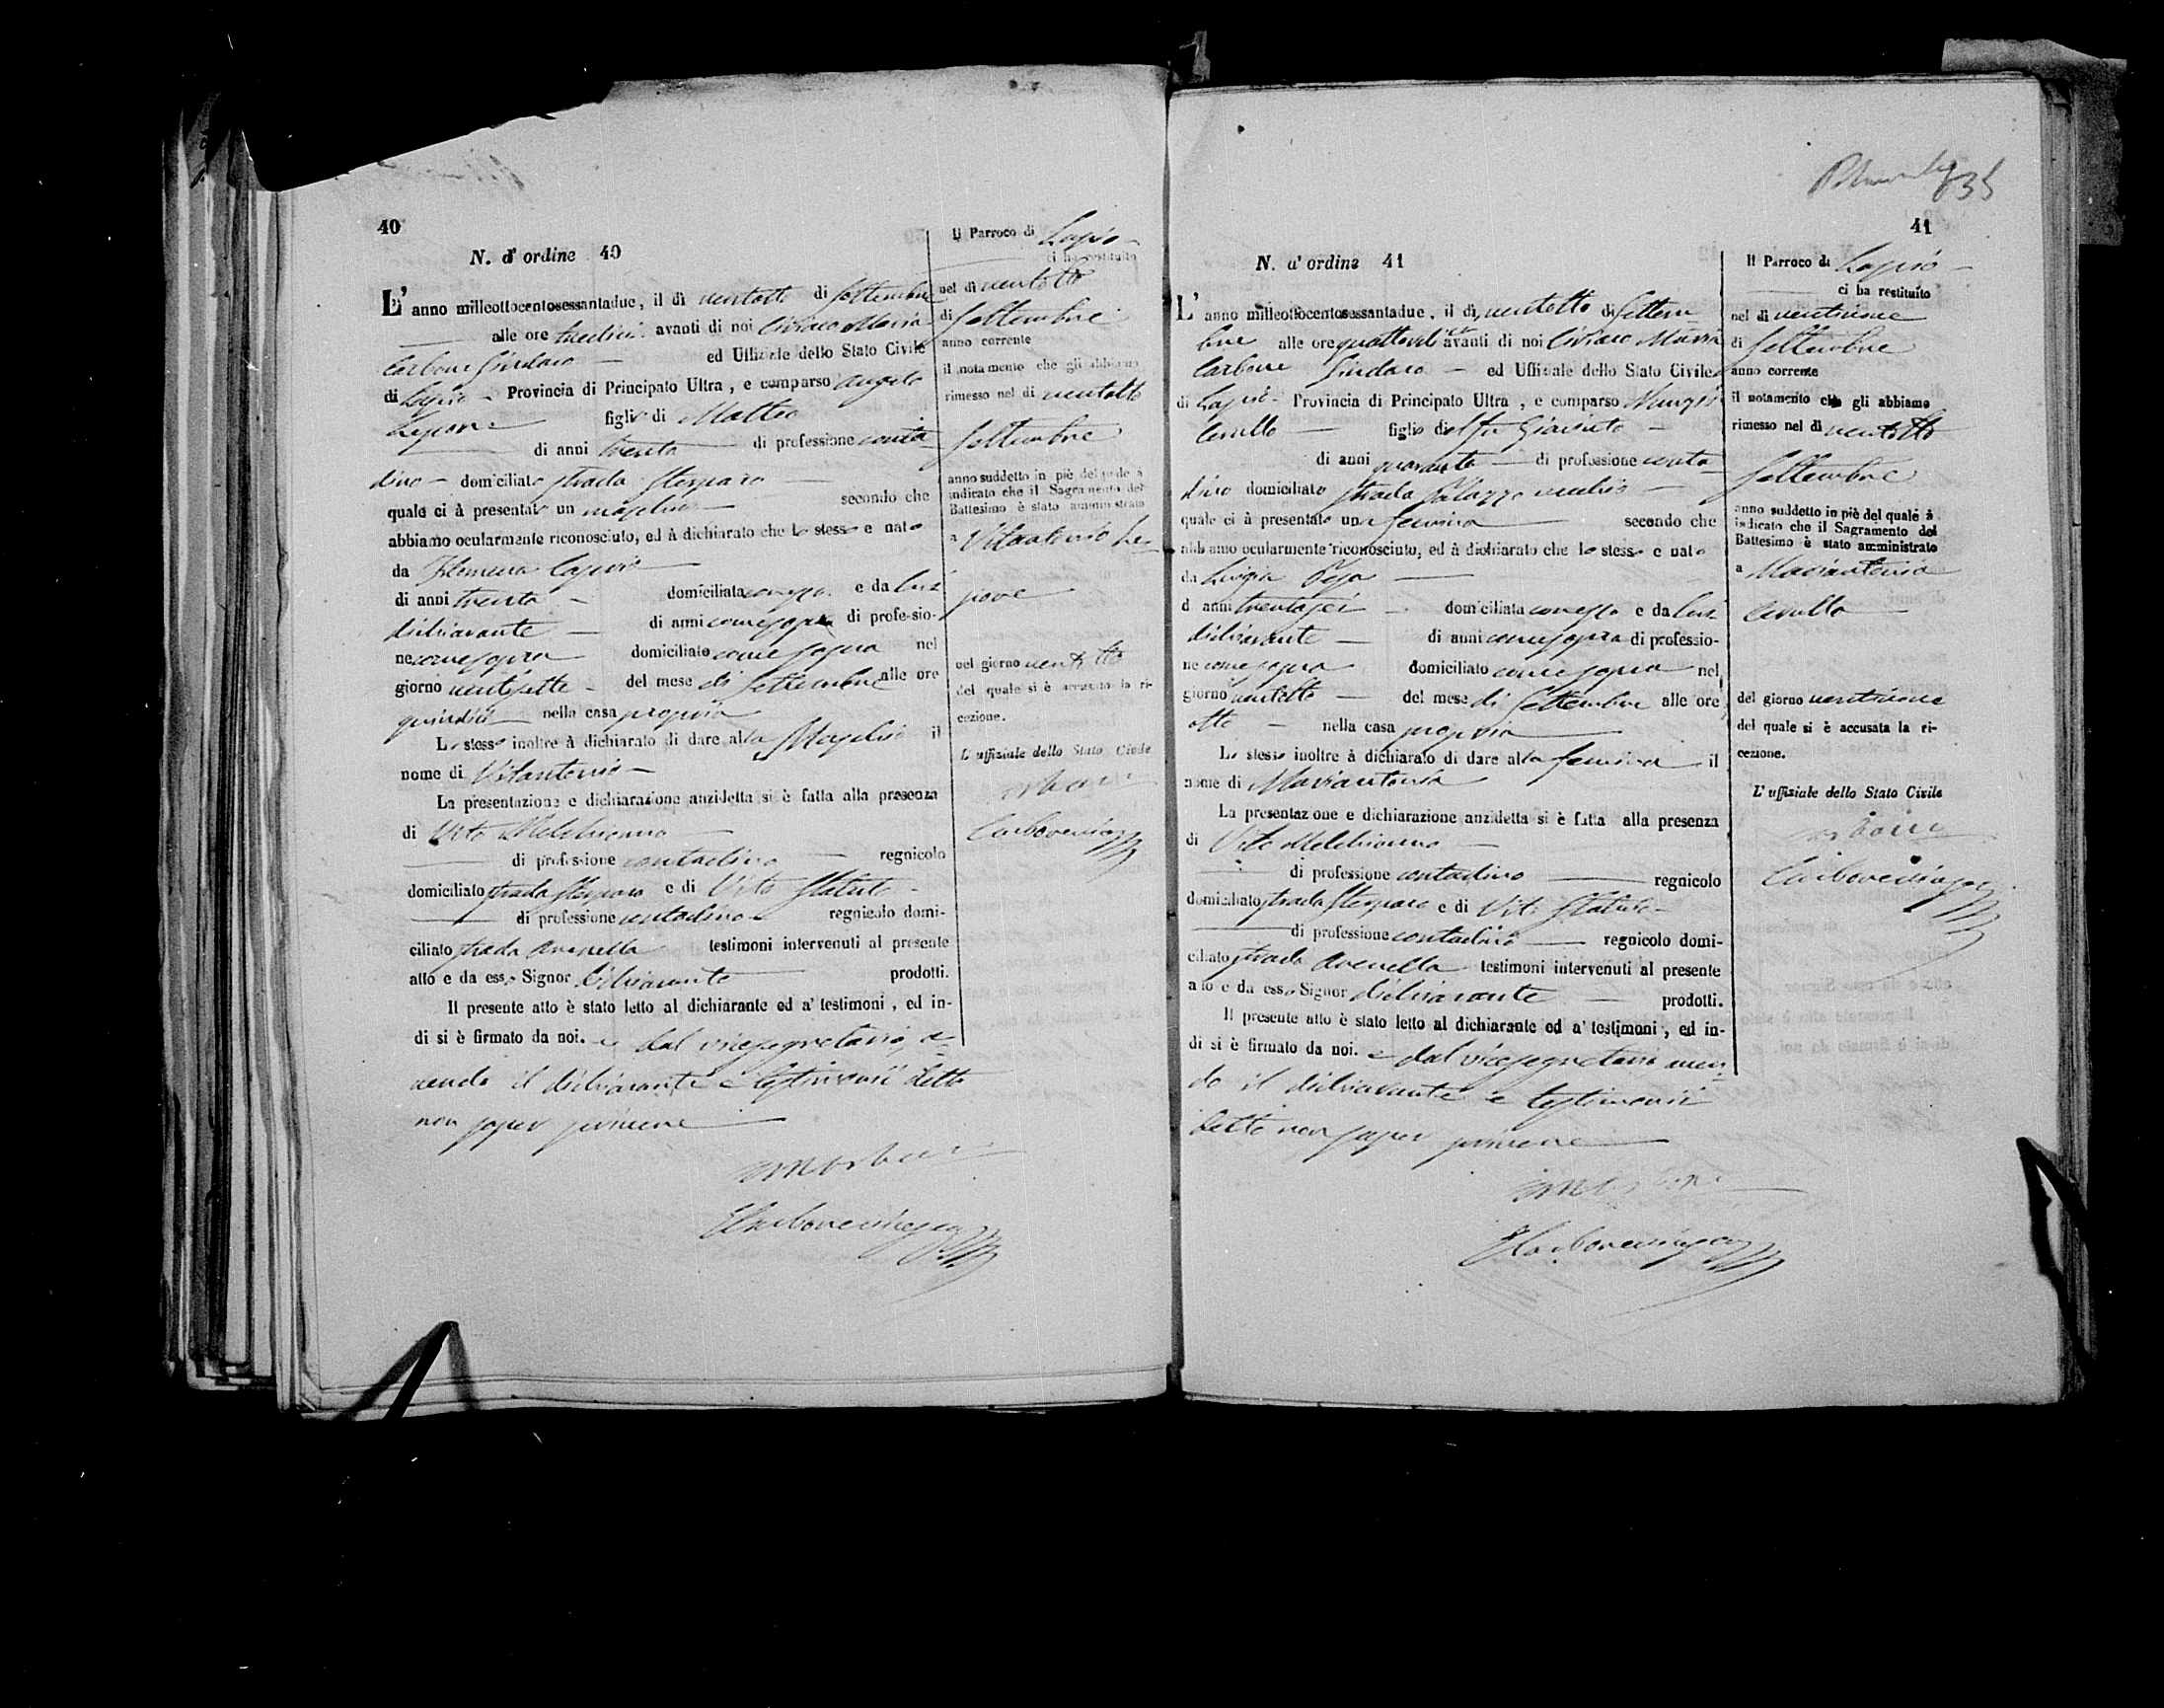 40
N. d' ordine 40
L' anno milleottocentosessantadue, il dì ventotto di Settembre
alle ore tredici avanti di noi Ciriaco Maria
Carbone Sindaco ed Uffiziale dello Stato Civile
di Lapio Provincia di Principato Ultra, e comparso Angelo
figlio di Matteo
di anni trenta di professione conta
dino domiciliato strada
quale ci à presentato un maschio secondo che
abbiamo ocularmente riconosciuto, ed à dichiarato che lo stesso e nato
da Filomena
di anni trenta domiciliata come sopra e da lui
dichiarante di anni come sopra di professio-
ne come sopra domiciliato come sopra nel
giorno ventisette del mese di Settembre alle ore
quindici nella casa propria
Lo stesso inoltre à dichiarato di dare alla Maschio il
nome di Vitantonio
La presentazione e dichiarazione anzidetta si è fatta alla presenza
di Vito Melchionna
di professione contadino regnicolo
domiciliato strada e di Vito Statuto
di professione contadino regnicolo domi-
ciliato strada Avenella testimoni intervenuti al presente
atto e da esso Signor dichiarante prodotti.
Il presente atto è stato letto al dichiarante ed a' testimoni, ed in-
di si è firmato da noi. e dal vicesegretario, a-
vendo il dichiarante e testimonii detto
non saper firmare
Il Parroco di Lapio
ci ha restituito
nel dì ventotto
di Settembre
anno corrente
il notamento che gli abbiamo
rimesso nel dì ventotto
Settembre
anno suddetto in piè del quale à
indicato che il Sagramento del
Battesimo è stato amministrato
a Vitantonio
nel giorno ventotto
del quale si è accusata la ri-
cezione.
L' uffiziale dello Stato Civile
41
N. d' ordine 41
L' anno milleottocentosessantadue, il dì ventotto di Settem
bre alle ore quattordici avanti di noi Ciriaco Maria
Carbone Sindaco ed Uffiziale dello Stato Civile
di Lapio Provincia di Principato Ultra, e comparso
Cerullo figlio del fu Giacinto
di anni quaranta di professione conta
dino domiciliato strada Palazzo vecchio
quale ci à presentato una femina secondo che
abbiamo ocularmente riconosciuto, ed à dichiarato che lo stesso e nato
da Luigia
di anni trentasei domiciliata come sopra e da lui
dichiarante di anni come sopra di professio-
ne come sopra domiciliato come sopra nel
giorno ventotto del mese di Settembre alle ore
otto nella casa propria
Lo stesso inoltre à dichiarato di dare alla femina il
nome di Mariantonia
La presentazione e dichiarazione anzidetta si è fatta alla presenza
di Vito Melchionna
di professione contadino regnicolo
domiciliato strada e di Vito Statuto
di professione contadino regnicolo domi-
ciliato strada Avenella testimoni intervenuti al presente
atto e da esso Signor dichiarante prodotti.
Il presente atto è stato letto al dichiarante ed a' testimoni, ed in-
di si è firmato da noi. e dal vicesegretario aven
do il dichiarante e testimonii
detto non saper firmare
Il Parroco di Lapio
ci ha restituito
nel dì ventinove
di Settembre
anno corrente
il notamento che gli abbiamo
rimesso nel dì ventotto
Settembre
anno suddetto in piè del quale à
indicato che il Sagramento del
Battesimo è stato amministrato
a Mariantonia
Cerullo
del giorno ventinove
del quale si è accusata la ri-
cezione.
L' uffiziale dello Stato Civile